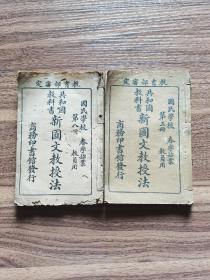 教育部審定
國民學校 春季始業 教員用
共和國教科書
新國文教授法
第八冊
商務印書館發行
教育部審定
國民學校 春季始業 教員用
共和國教科書
新國文教授法
第五冊
商務印書館發行